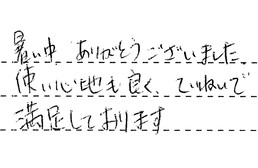 暑い中 ありがとうございました、
使い心地も良く、ていねいで
満足しております